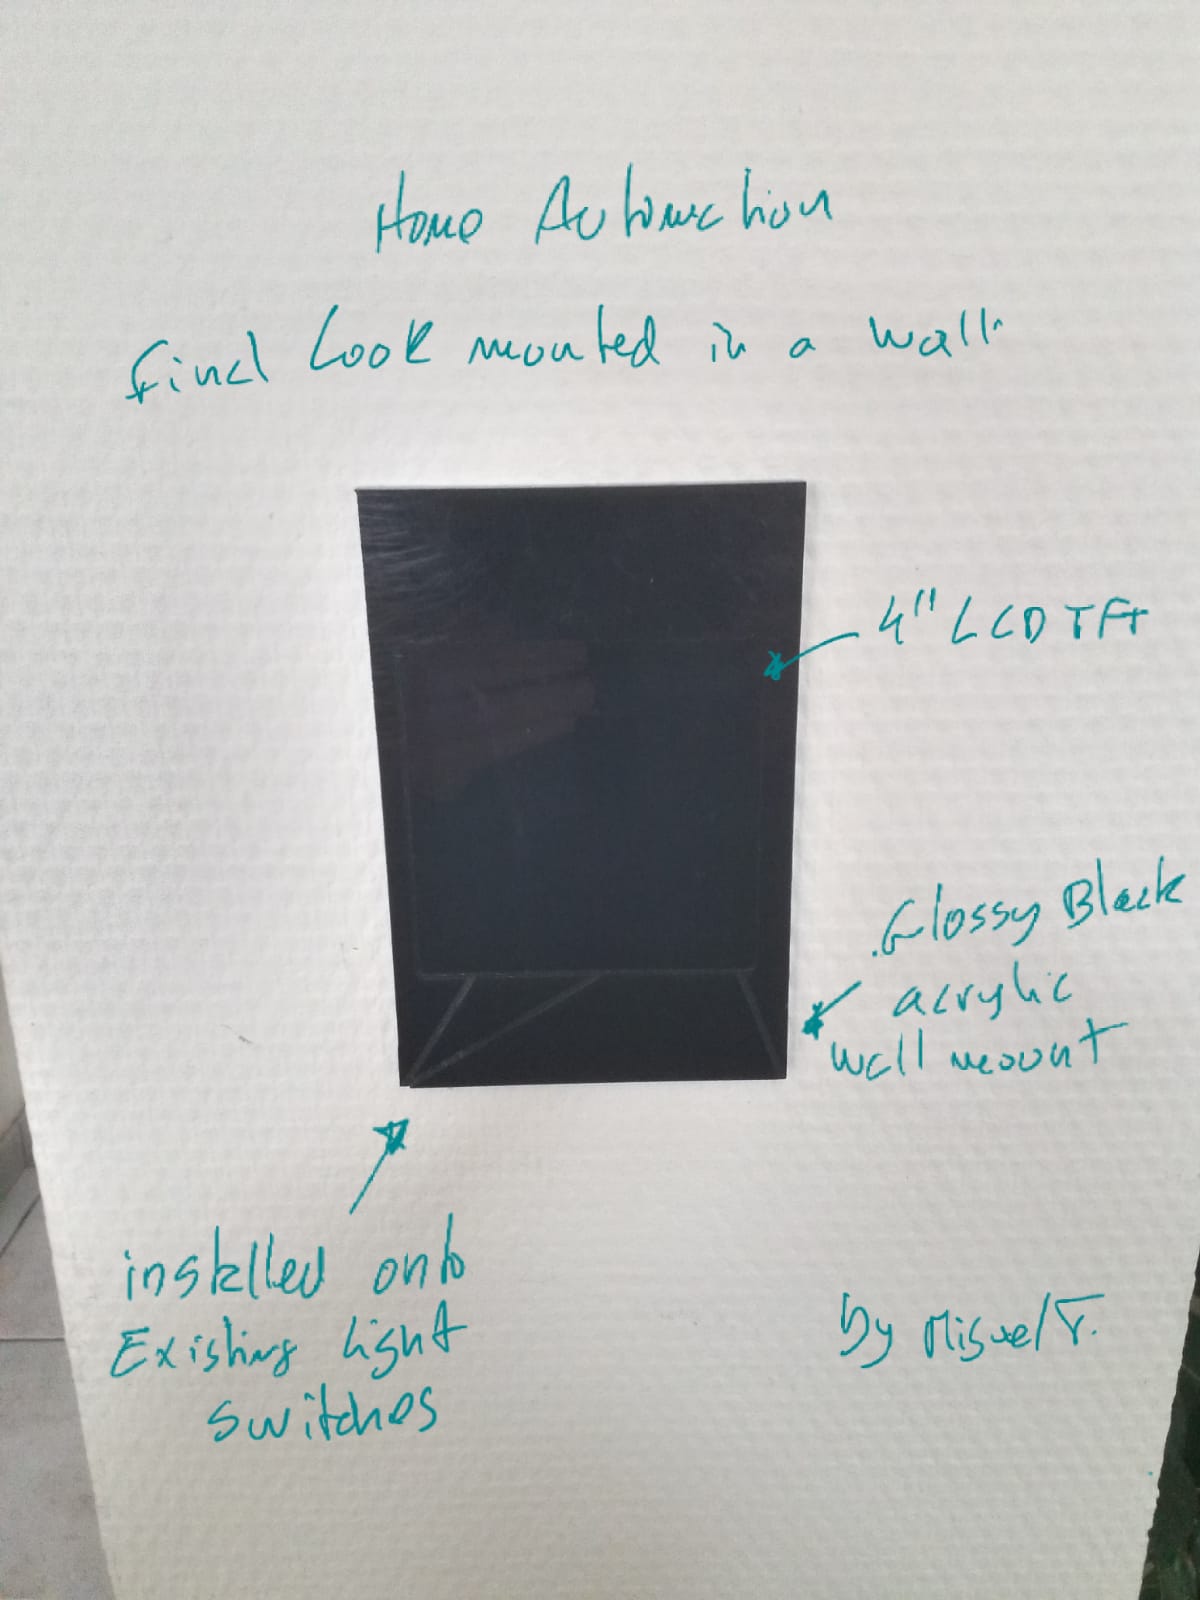 Home Automation
final Look mounted in a wall.
4" LCD TFT
Glossy Black
acrylic
wall mount
installed onto
Existing light
switches
by Miguel T.